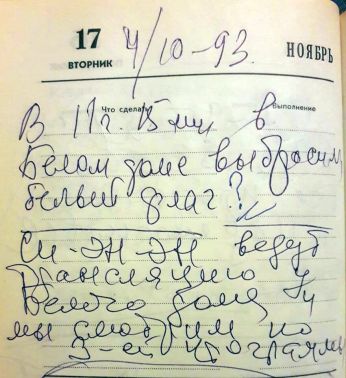 17 4/10-93. НОЯБРЬ
ВТОРНИК
Что сделать Выполнение
В 11 г. 15 мин в
Белом доме выбросили
белый флаг?
Си-Эн-Эн ведут
трансляцию у
Белого дома
мы смотрим по
3-ей программе